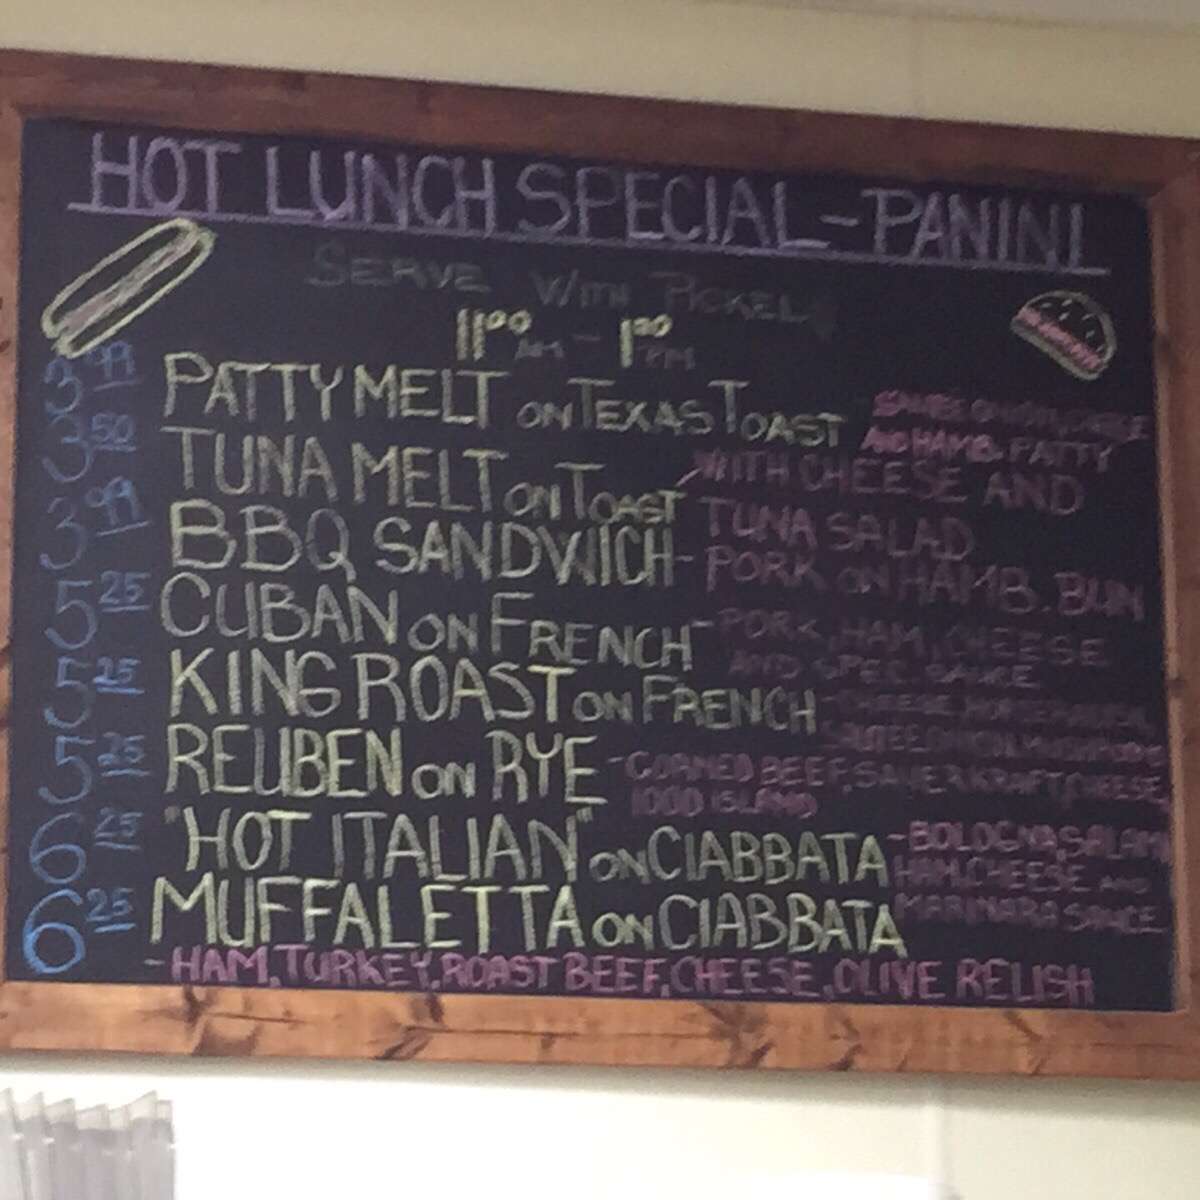 HOT LUNCH SPECIAL - PANINI
SERVE WITH PICKEL
11:00 AM - 1:00 PM
3.99 PATTY MELT ON TEXAS TOAST
AND HAMB. PATTY
3.50 TUNA MELT ON TOAST - WITH CHEESE AND
TUNA SALAD
3.99 BBQ SANDWICH - PORK ON HAMB. BUN
5.25 CUBAN ON FRENCH - PORK, HAM, CHEESE
AND SPEC. SAUCE
5.25 KING ROAST ON FRENCH - CHEESE
5.25 REUBEN ON RYE - CORNED BEEF, SAUERKRAFT, CHEESE,
1000 ISLAND
6.25 "HOT ITALIAN" ON CIABBATA - BOLOGNA, SALAMI
HAM, CHEESE AND
MARINARA SAUCE
6.25 MUFFALETTA ON CIABBATA
- HAM, TURKEY, ROAST BEEF, CHEESE, OLIVE RELISH